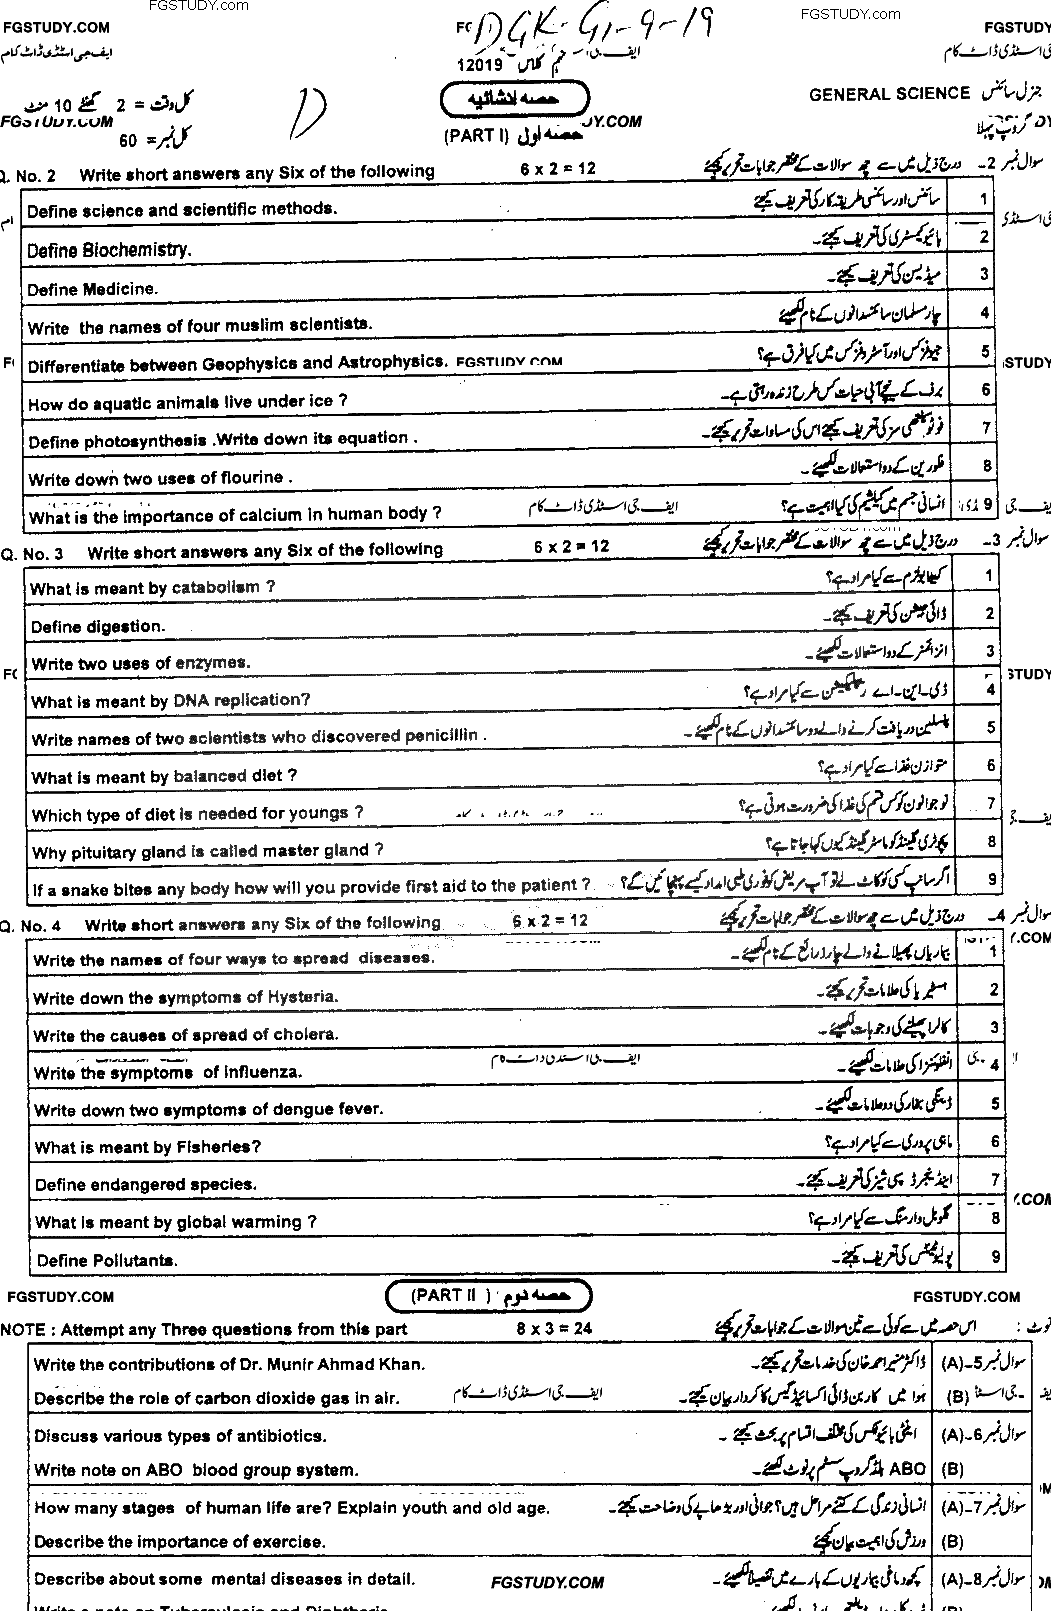 FGSTUDY.com
FGSTUDY.com
DGK-G1-9-19
FGSTUDY.COM
FGSTUDY
ایف۔جی اسٹڈی ڈاٹ کام
ی اسٹڈی ڈاٹ کام
12019 نہم کلاس
حصہ انشائیہ
GENERAL SCIENCE جنرل سائنس
کل وقت = 2 گھنٹے 10 منٹ
D
FGSTUDY.COM
گروپ پہلا
کل نمبر = 60
(PART I) حصہ اول
Q. No. 2 Write short answers any Six of the following 6 x 2 = 12 سوال نمبر 2۔ درج ذیل میں سے چھ سوالات کے مختصر جوابات تحریر کیجئے
Define science and scientific methods. سائنس اور سائنسی طریقہ کار کی تعریف کیجئے 1
Define Biochemistry. بائیوکیمسٹری کی تعریف کیجئے۔ 2
Define Medicine. میڈیسن کی تعریف کیجئے۔ 3
Write the names of four muslim scientists. چار مسلمان سائنسدانوں کے نام لکھیئے 4
Differentiate between Geophysics and Astrophysics. FGSTUDY.COM جیوفزکس اور آسٹروفزکس میں کیا فرق ہے؟ 5
How do aquatic animals live under ice ? برف کے نیچے آبی حیات کس طرح زندہ رہتی ہے۔ 6
Define photosynthesis .Write down its equation . فوٹوسنتھی سز کی تعریف کیجئے اس کی مساوات تحریر کیجئے۔ 7
Write down two uses of flourine . فلورین کے دو استعمالات لکھیئے۔ 8
What is the importance of calcium in human body ? ایف۔جی اسٹڈی ڈاٹ کام انسانی جسم میں کیلشیم کی کیا اہمیت ہے؟ 9
Q. No. 3 Write short answers any Six of the following 6 x 2 = 12 سوال نمبر 3۔ درج ذیل میں سے چھ سوالات کے مختصر جوابات تحریر کیجئے
What is meant by catabolism ? کیٹابولزم سے کیا مراد ہے؟ 1
Define digestion. ڈائی جیشن کی تعریف کیجئے۔ 2
Write two uses of enzymes. انزائمز کے دو استعمالات لکھیئے۔ 3
What is meant by DNA replication? ڈی۔این۔اے ریپلیکیشن سے کیا مراد ہے؟ 4
Write names of two scientists who discovered penicillin . پنسلین دریافت کرنے والے دو سائنسدانوں کے نام لکھیئے۔ 5
What is meant by balanced diet ? متوازن غذا سے کیا مراد ہے؟ 6
Which type of diet is needed for youngs ? نوجوانوں کو کس قسم کی غذا کی ضرورت ہوتی ہے؟ 7
Why pituitary gland is called master gland ? پچوٹری گلینڈ کو ماسٹر گلینڈ کیوں کہا جاتا ہے؟ 8
If a snake bites any body how will you provide first aid to the patient ? اگر سانپ کسی کو کاٹ لے تو آپ مریض کو فوری طبی امداد کیسے پہنچائیں گے؟ 9
Q. No. 4 Write short answers any Six of the following 6 x 2 = 12 سوال نمبر 4۔ درج ذیل میں سے چھ سوالات کے مختصر جوابات تحریر کیجئے
Write the names of four ways to spread diseases. بیماریاں پھیلانے والے چار ذرائع کے نام لکھیئے۔ 1
Write down the symptoms of Hysteria. ہسٹیریا کی علامات تحریر کیجئے۔ 2
Write the causes of spread of cholera. کالرا پھیلنے کی وجوہات لکھیئے۔ 3
Write the symptoms of influenza. ایف۔جی اسٹڈی ڈاٹ کام انفلوئنزا کی علامات لکھیئے۔ 4
Write down two symptoms of dengue fever. ڈینگی بخار کی دو علامات لکھیئے۔ 5
What is meant by Fisheries? ماہی پروری سے کیا مراد ہے؟ 6
Define endangered species. اینڈینجرڈ سپی شیز کی تعریف کیجئے۔ 7
What is meant by global warming ? گلوبل وارمنگ سے کیا مراد ہے؟ 8
Define Pollutants. پولیوٹینٹس کی تعریف کیجئے۔ 9
FGSTUDY.COM (PART II) حصہ دوم FGSTUDY.COM
NOTE : Attempt any Three questions from this part 8 x 3 = 24 نوٹ : اس حصہ میں سے کوئی سے تین سوالات کے جوابات تحریر کیجئے
Write the contributions of Dr. Munir Ahmad Khan. ڈاکٹر منیر احمد خان کی خدمات تحریر کیجئے۔ سوال نمبر 5۔(A)
Describe the role of carbon dioxide gas in air. ایف۔جی اسٹڈی ڈاٹ کام ہوا میں کاربن ڈائی اکسائیڈ گیس کا کردار بیان کیجئے۔ (B)
Discuss various types of antibiotics. اینٹی بائیوٹکس کی مختلف اقسام پر بحث کیجئے۔ سوال نمبر 6۔(A)
Write note on ABO blood group system. ABO بلڈ گروپ سسٹم پر نوٹ لکھیئے۔ (B)
How many stages of human life are? Explain youth and old age. انسانی زندگی کے کتنے مراحل ہیں؟ جوانی اور بڑھاپے کی وضاحت کیجئے۔ سوال نمبر 7۔(A)
Describe the importance of exercise. ورزش کی اہمیت بیان کیجئے (B)
Describe about some mental diseases in detail. FGSTUDY.COM کچھ دماغی بیماریوں کے بارے میں تفصیلاً لکھیئے۔ سوال نمبر 8۔(A)
Write a note on Tuberculosis and Diphtheria.